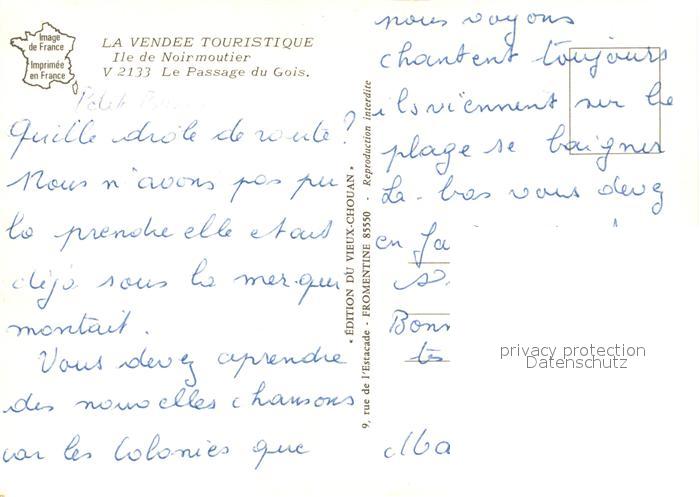 Image
de France
Imprimée
en France
LA VENDEE TOURISTIQUE
Ile de Noirmoutier
V 2133 Le Passage du Gois.
Petit
Quille drôle de route ?
Nous n'avons pas pu
la prendre elle était
déjà sous la mer qui
montait.
Vous devez aprendre
des nouvelles chansons
car les Colonies que
« ÉDITION DU VIEUX-CHOUAN »
9, rue de l'Estacade - FROMENTINE 85550 - Reproduction interdite
nous voyons
chantent toujours
ils viennent sur la
plage se baigner
La-bas vous devez
en fa
Bonn
privacy protection
Datenschutz